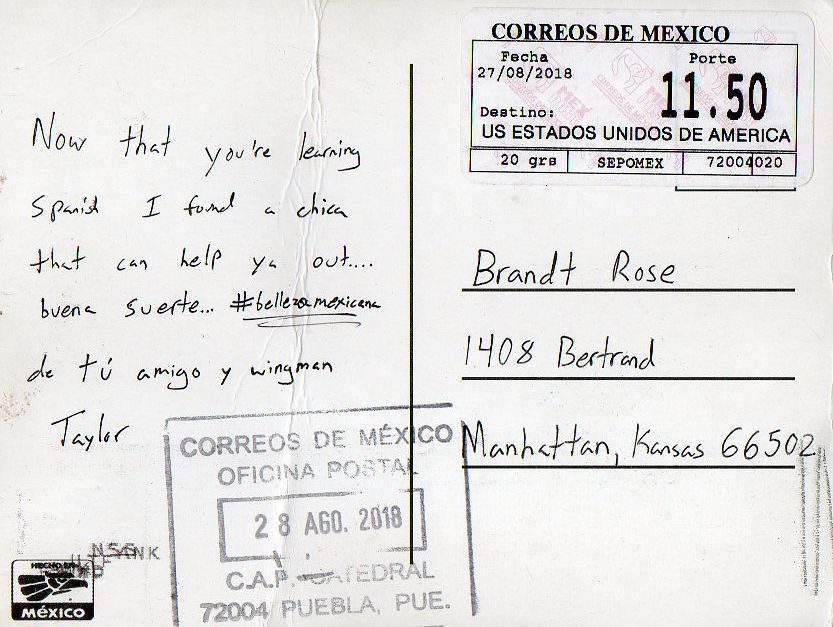 CORREOS DE MEXICO
Fecha Porte
27/08/2018 11.50
Destino:
US ESTADOS UNIDOS DE AMERICA
20 grs SEPOMEX 72004020
Now that you're learning
Spanish I found a chica
that can help ya out....
buena suerte... #bellezamexicana
de tú amigo y wingman
Taylor
Brandt Rose
1408 Bertrand
Manhattan, Kansas 66502
CORREOS DE MÉXICO
OFICINA POSTAL
28 AGO. 2018
C.A.P. CATEDRAL
72004 PUEBLA, PUE.
HECHO EN
MÉXICO